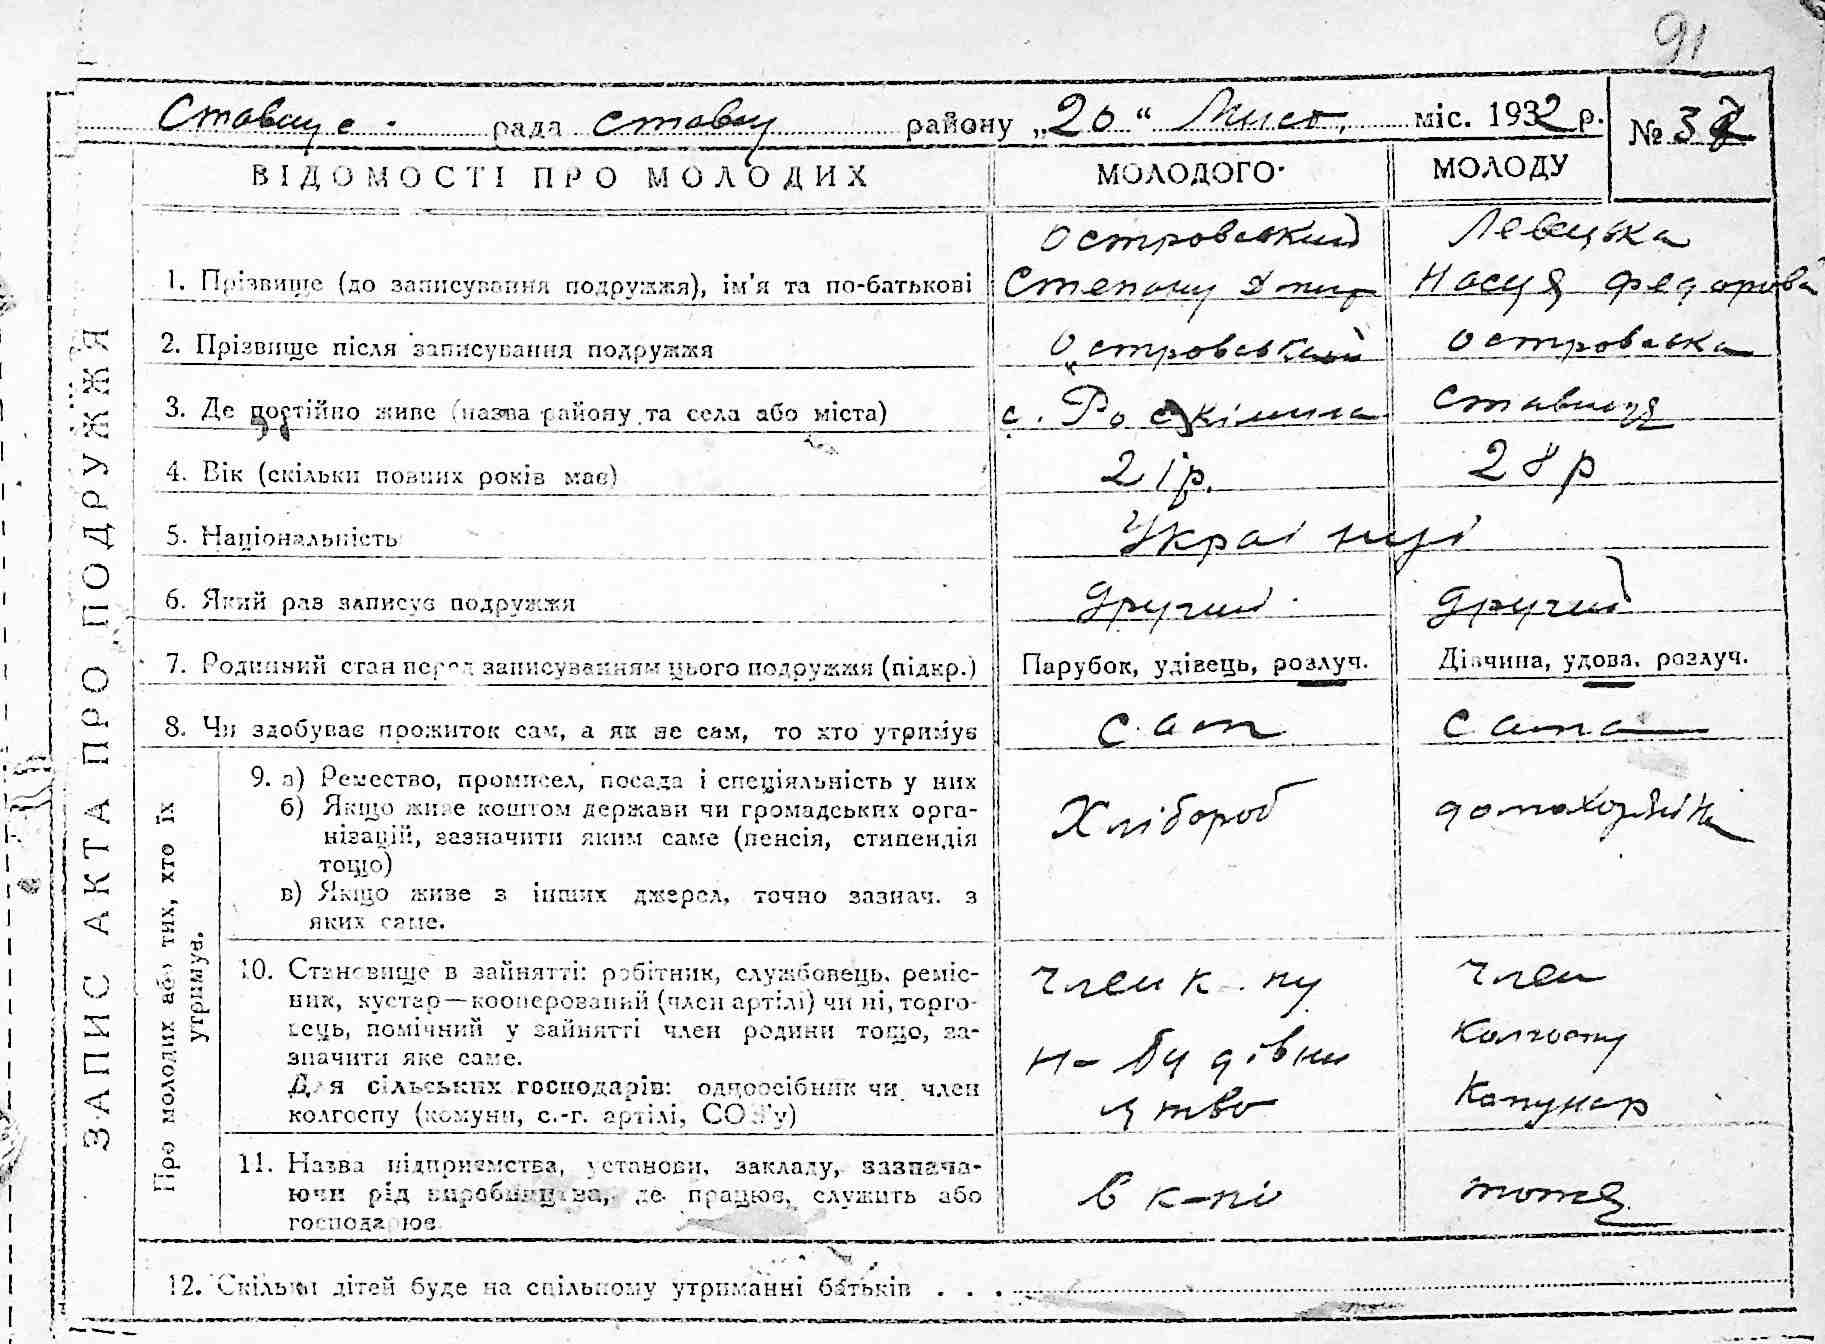 91
Ставище рада ставищ району „20“ Лист. міс. 1932 р. № 37
ВІДОМОСТІ ПРО МОЛОДИХ МОЛОДОГО МОЛОДУ
Островський Левецька
1. Прізвище (до записування подружжя), ім'я та по-батькові Степану Дмит Насця Федорова
2. Прізвище після записування подружжя Островський Островська
3. Де постійно живе (назва району та села або міста) с. Розкішна Ставище
4. Вік (скільки повних років має) 21р. 28р
5. Національність Украінці
6. Який раз записує подружжя другий другий
7. Родинний стан перед записуванням цього подружжя (підкр.) Парубок, удівець, розлуч. Дівчина, удова, розлуч.
8. Чи здобуває прожиток сам, а як не сам, то хто утримує сам сама
9. а) Ремество, промисел, посада і спеціяльність у них
б) Якщо живе коштом держави чи громадських орга- Хлібороб домахозяіка
нізацій, зазначити яким саме (пенсія, стипендія
тощо)
в) Якщо живе з інших джерел, точно зазнач. з
яких саме.
10. Становище в зайнятті: робітник, службовець, реміс- член к-пу член
ник, кустар—кооперований (член артілі) чи ні, торго-
вець, помічний у зайнятті член родини тощо, за- н-будівни колгоспу
значити яке саме.
Для сільських господарів: одноосібник чи член цтво
колгоспу (комуни, с.-г. артілі, СОЗ'у)
11. Назва підприємства, установи, закладу, зазнача-
ючи рід виробництва, де працює, служить або в к-пі тоже
господарює
12. Скільки дітей буде на спільному утриманні батьків . . .
ЗАПИС АКТА ПРО ПОДРУЖЖЯ
Про молодих або тих, хто їх
утримує.